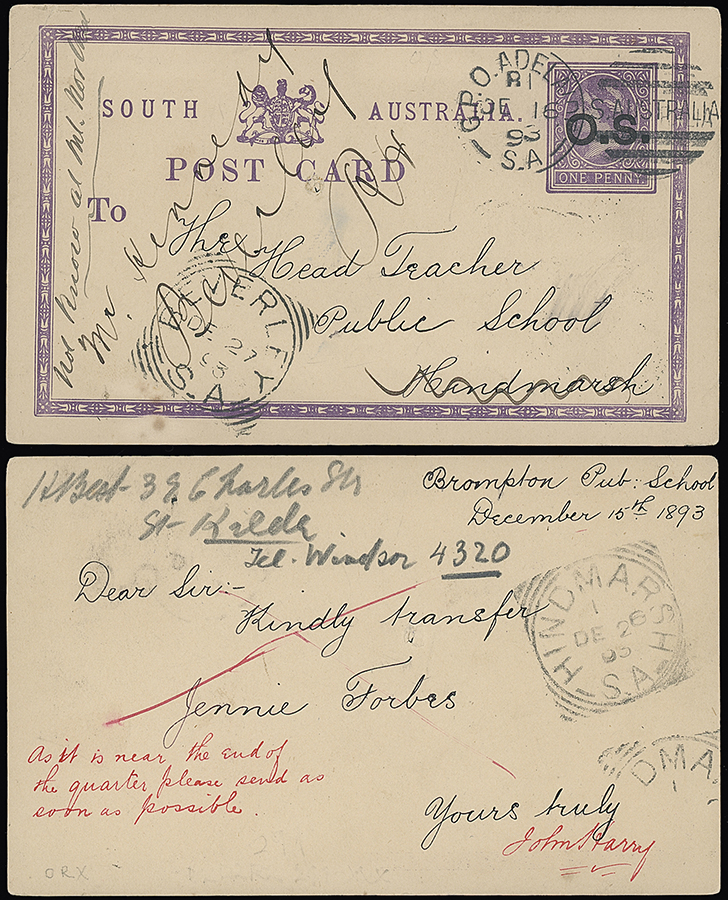 SOUTH AUSTRALIA.
POST CARD
To
G.P.O. ADEL
B1
DE 16
93
S.A
S. AUSTRALIA
O.S.
ONE PENNY
not known at
Mr.
The Head Teacher
Public School
Hindmarsh
BEVERLEY
DE 27
93
S.A
H Best 38 Charles Str
St Kilda
Tel. Windsor 4320
Brompton Pub: School
December 15th 1893
Dear Sir:-
Kindly transfer
Jennie Forbes
HINDMARSH
1
DE 26
93
S.A
DMA
1
As it is near the end of
the quarter please send as
soon as possible.
Yours truly
John Harry
ORX